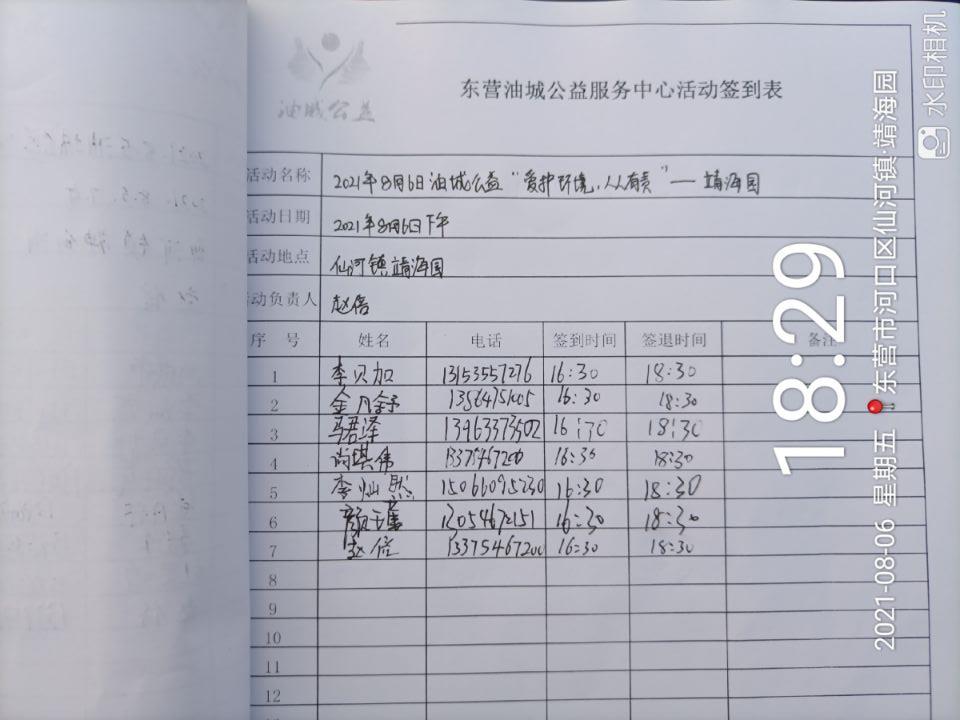 油城公益
东营油城公益服务中心活动签到表
活动名称 2021年8月6日油城公益“爱护环境,人人有责”— 靖海园
活动日期 2021年8月6日下午
活动地点 仙河镇靖海园
活动负责人 赵倍
序 号 姓名 电话 签到时间 签退时间 备注
1 李贝加 13153557276 16:30 18:30
2 16:30 18:30
3 马君泽 13963373502 18:30
4 尚琪伟 16:30 18:30
5 李灿然 15066095230 16:30 18:30
6 颜玉 16:30 18:30
7 赵倍 13375467200 16:30 18:30
8
9
10
11
12
18:29
2021-08-06 星期五 东营市河口区仙河镇·靖海园
水印相机